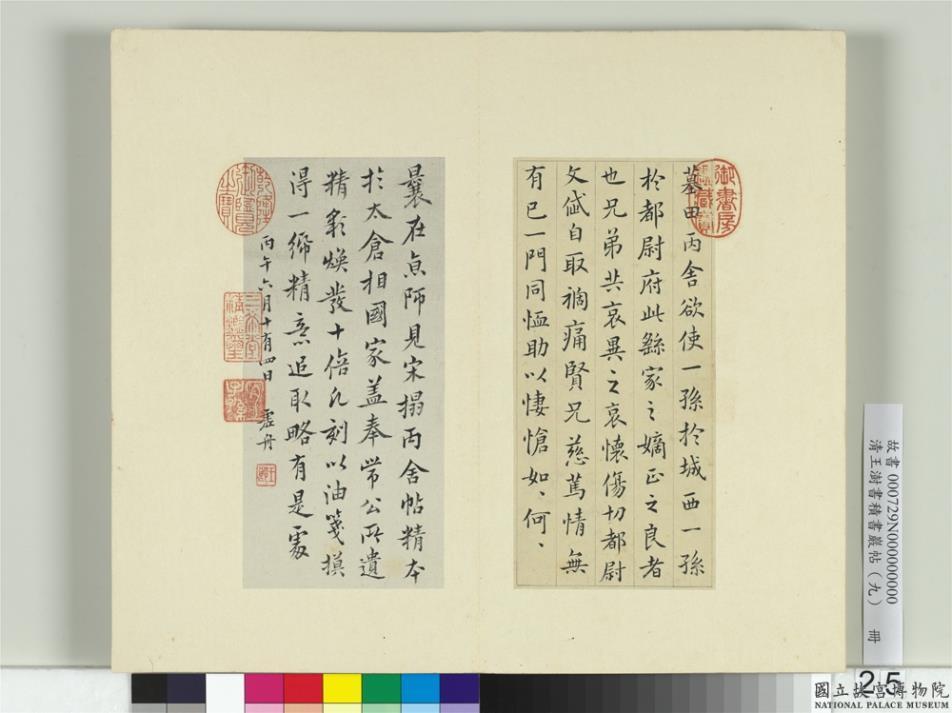 墓田丙舍欲使一孫於城西一孫
於都尉府此繇家之嫡正之良者
也兄弟共哀異之哀懷傷切都尉
文岱自取禍痛賢兄慈篤情無
有已一門同恤助以悽愴如、何、
曩在京師見宋搨丙舍帖精本
於太倉相國家蓋奉常公所遺
精彩煥發十倍凡刻以油箋摸
得一締精意追取略有是處
丙午六月十有四日 虛舟
御書房
乾隆御覽之寶
三希堂精鑑璽
宜子孫
故書 000729N000000000
清王澍書積書巖帖(九) 冊
25
國立故宮博物院
NATIONAL PALACE MUSEUM